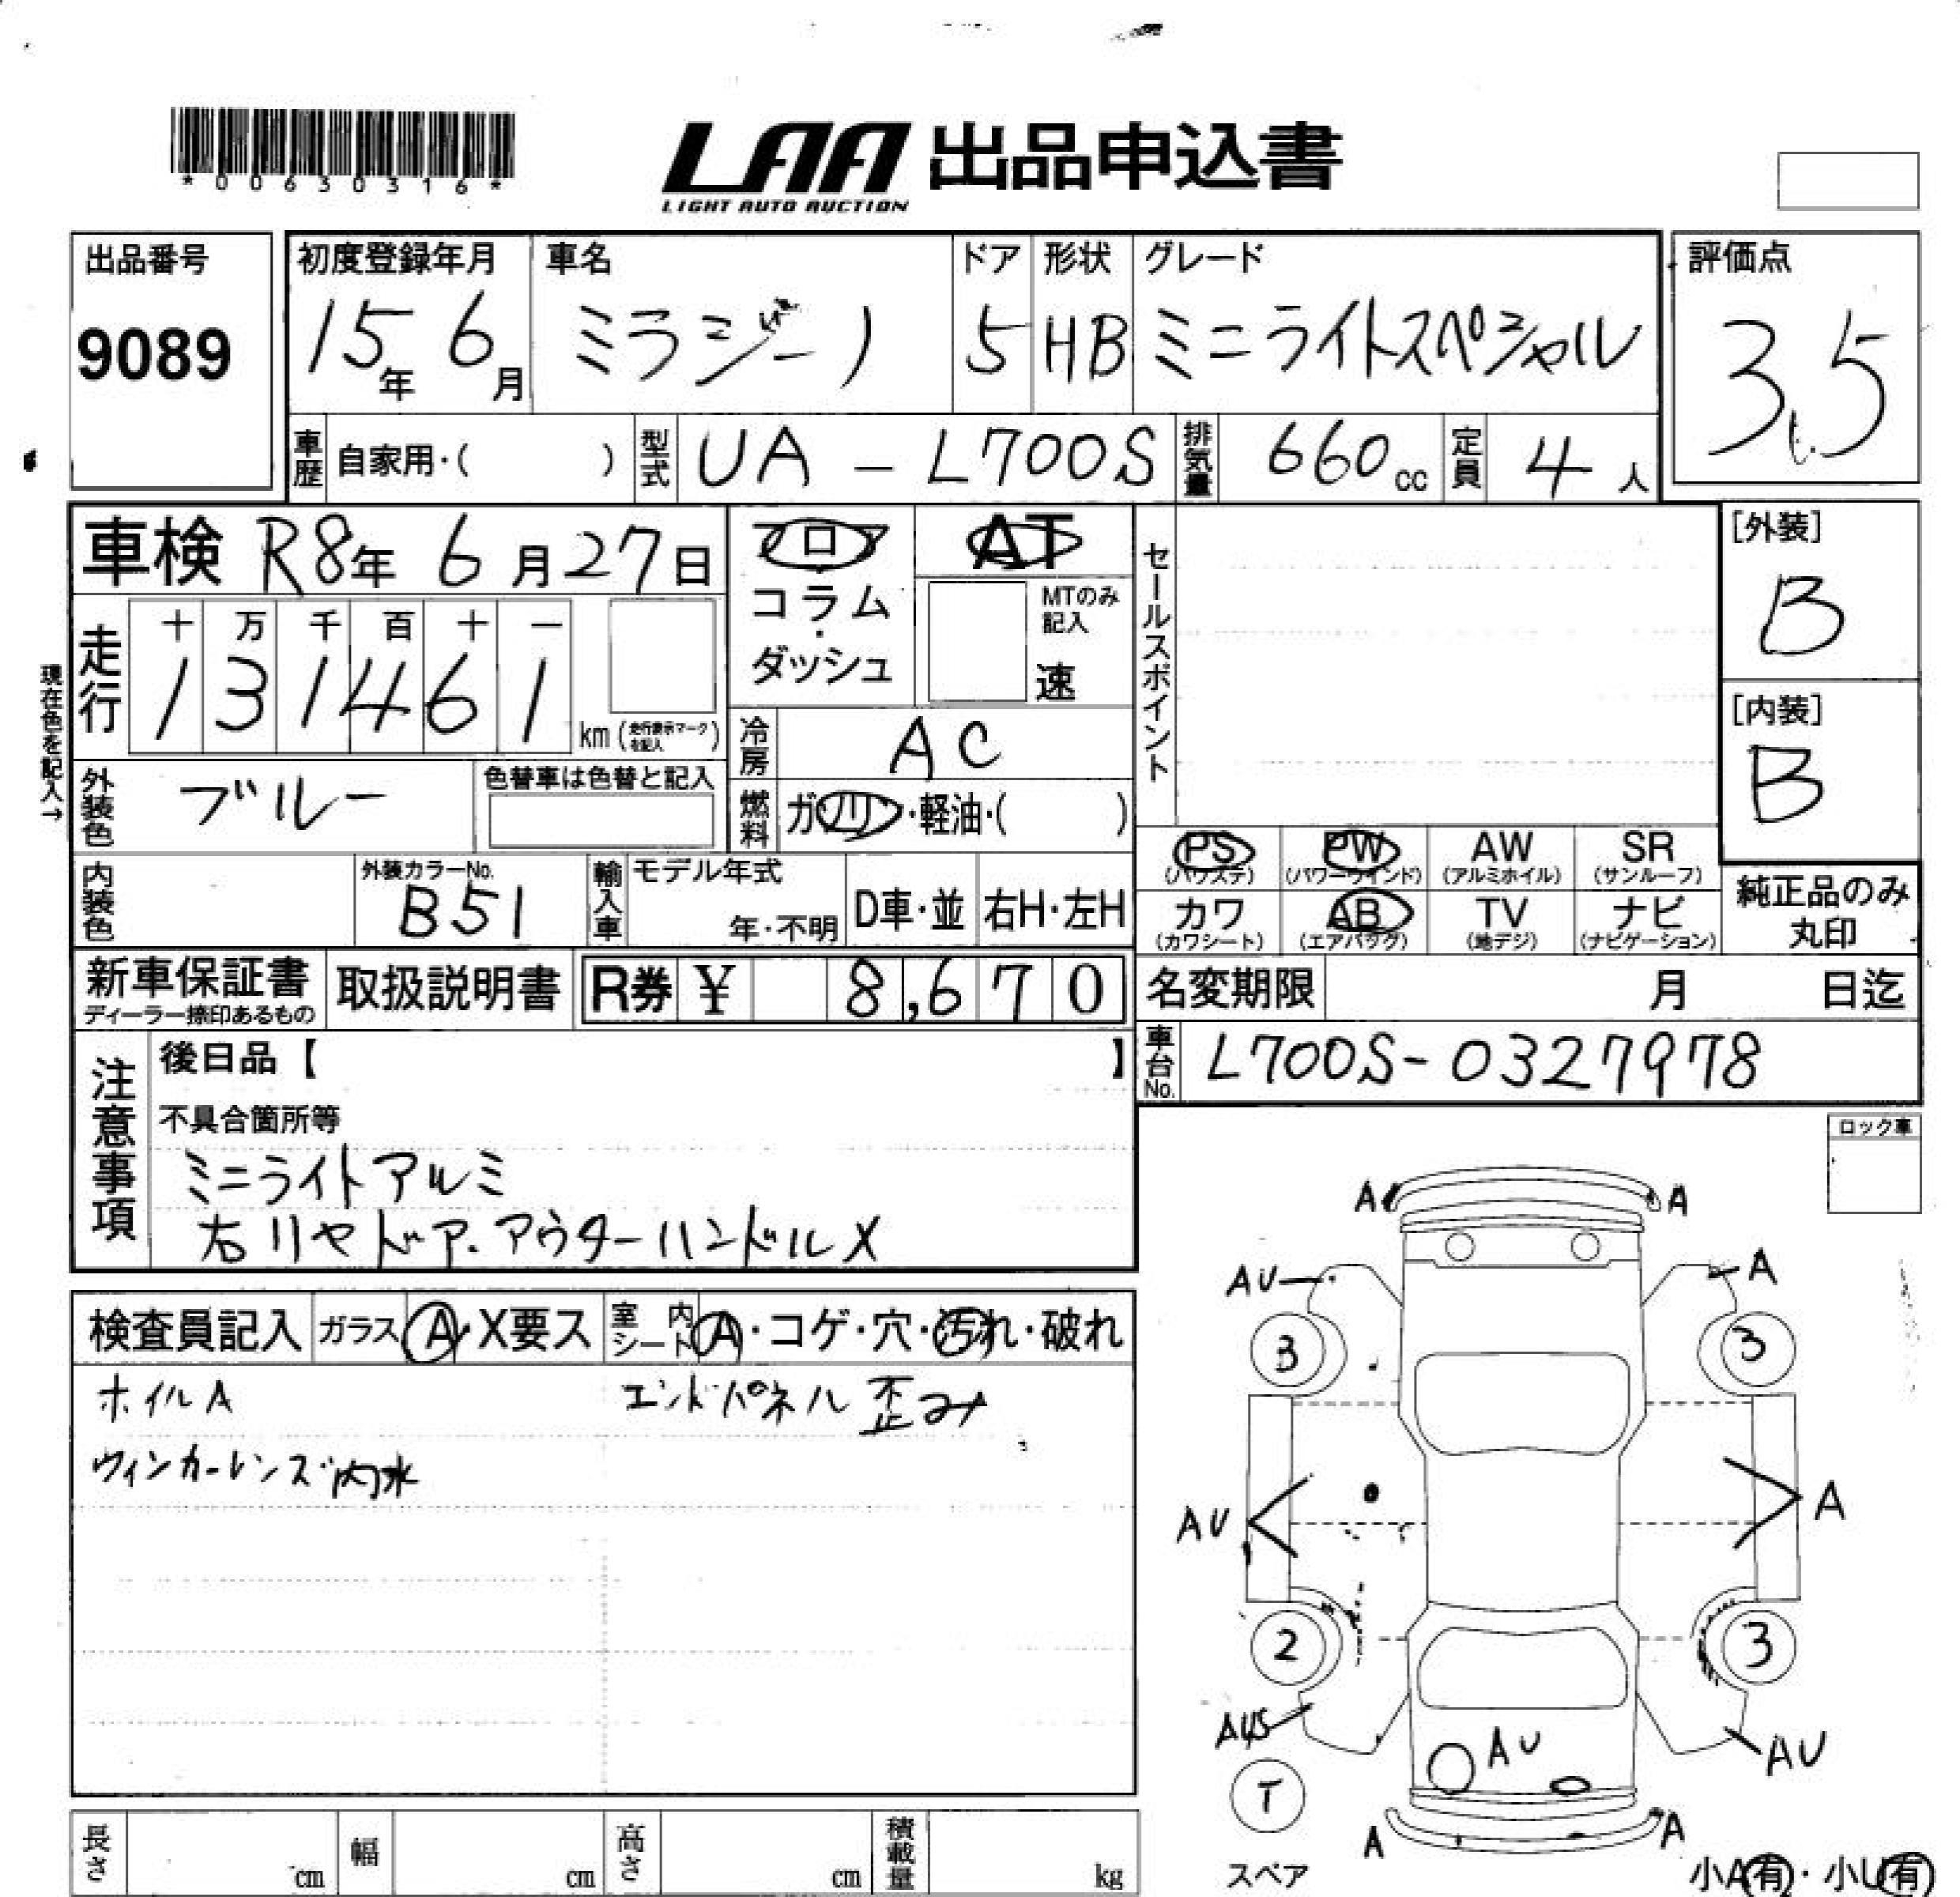 *00630316*
LAA 出品申込書
LIGHT AUTO AUCTION
出品番号
9089
初度登録年月
15年 6月
車名
ミラジーノ
ドア
5
形状
HB
グレード
ミニライトスペシャル
評価点
3.5
車歴 自家用・( )
型式 UA - L700S
排気量 660cc
定員 4人
車検 R8年 6月27日
フロア
コラム
・
ダッシュ
AT
MTのみ
記入
速
セールスポイント
[外装]
B
[内装]
B
現在色を記入→
走行
十 万 千 百 十 一
1 3 1 4 6 1
km (走行表示マークを記入)
冷房 AC
外装色 ブルー
色替車は色替と記入
燃料 ガソリン・軽油・( )
内装色
外装カラーNo.
B51
輸入車
モデル年式
年・不明
D車・並
右H・左H
PS
(パワステ)
PW
(パワーウインド)
AW
(アルミホイル)
SR
(サンルーフ)
カワ
(カワシート)
AB
(エアバッグ)
TV
(地デジ)
ナビ
(ナビゲーション)
純正品のみ
丸印
新車保証書
ディーラー捺印あるもの
取扱説明書
R券 ¥ 8,670
名変期限 月 日迄
車台No. L700S-0327978
注意事項
後日品【 】
不具合箇所等
ミニライトアルミ
右リヤドア.アウターハンドルX
ロック車
検査員記入
ガラス A・X要ス
室内シート A・コゲ・穴・汚れ・破れ
ホイルA
エンドパネル歪み
ウィンカーレンズ内水
A A
AU A
3 3
AU A
2 3
AUS
AU
AU
T
スペア
A A
小A有・小U有
長さ cm
幅 cm
高さ cm
積載量 kg